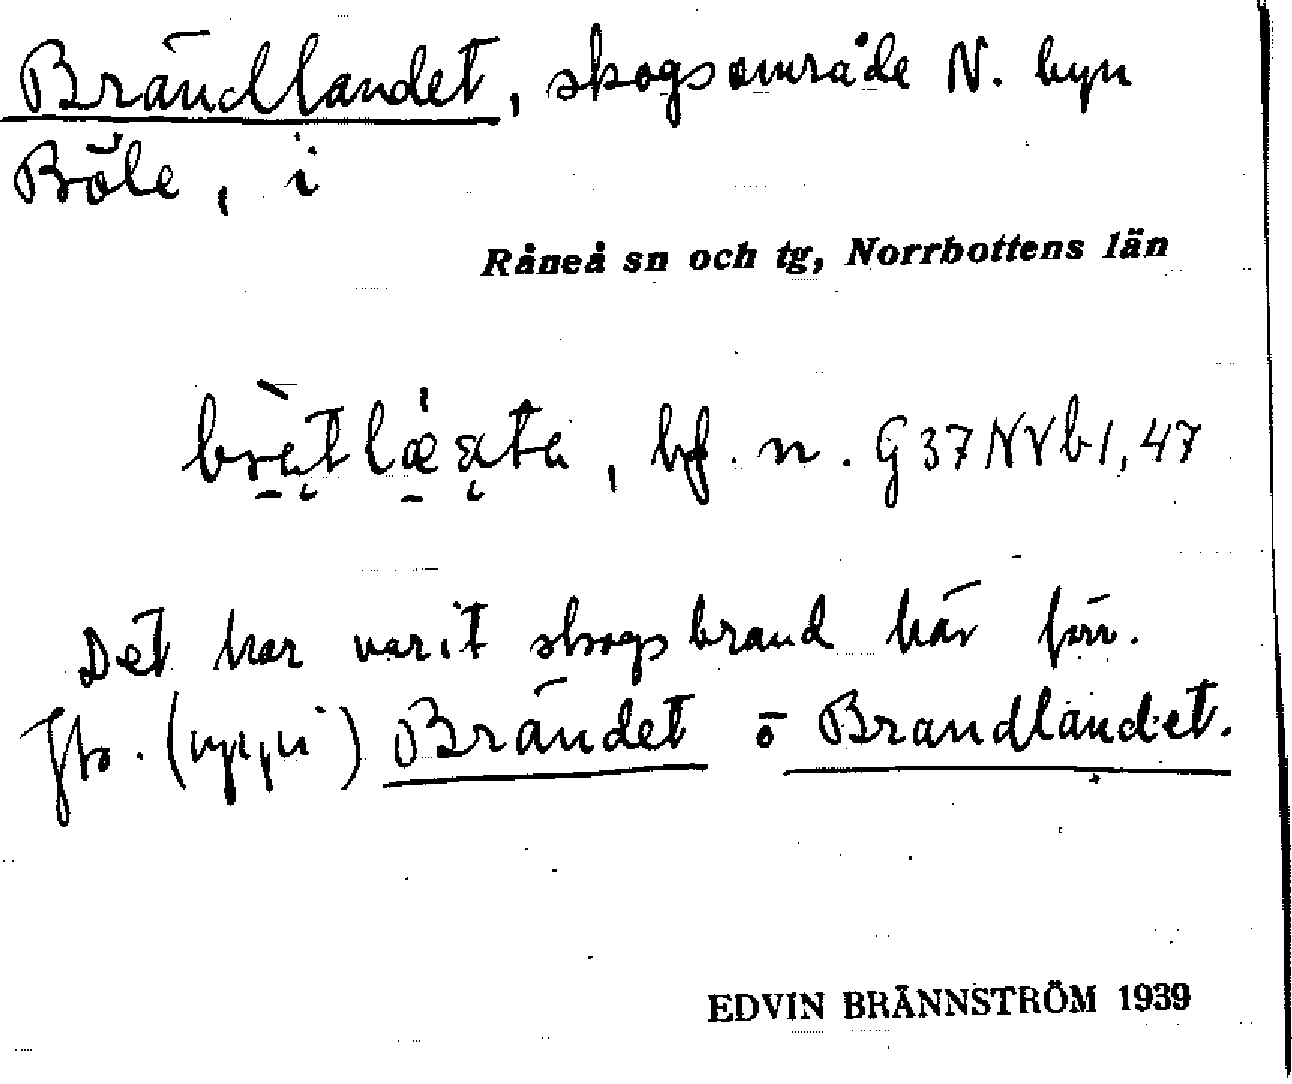 Brändlandet, skogsområde N. byn
Böle, i
Råneå sn och tg, Norrbottens län
bf. n. G37NVb1,47
Det har varit skogsbrand här förr.
Jfr. (uppu) Brändet o Brandlandet.
EDVIN BRÄNNSTRÖM 1939